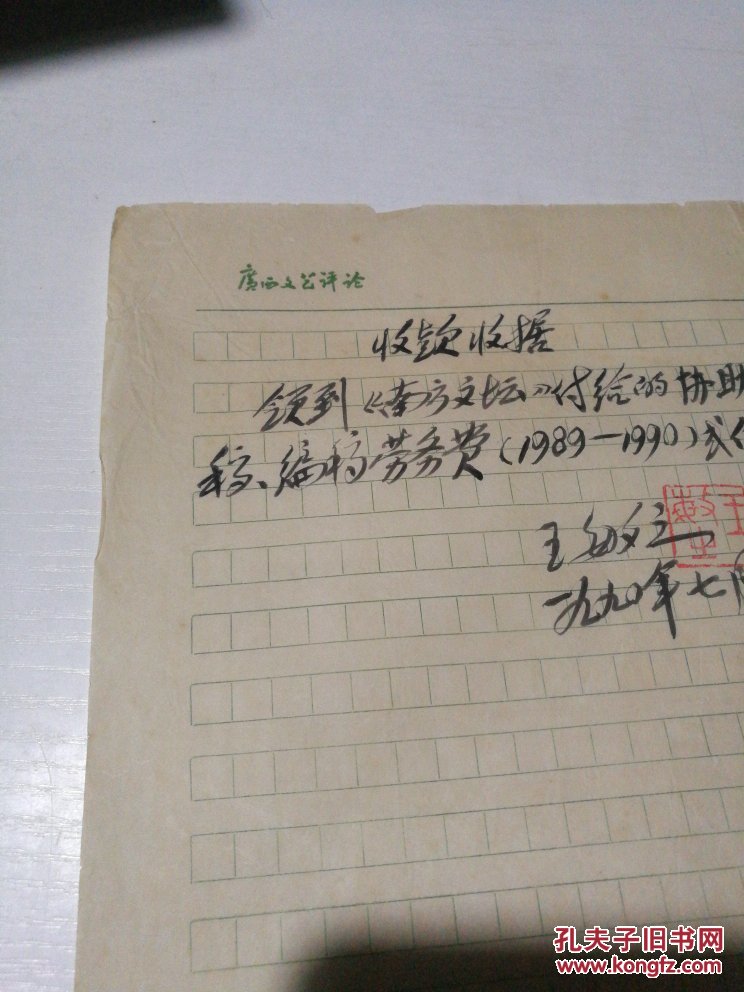 廣西文艺评论
收款收据
领到《南方文坛》付给的协助
稿、编稿劳务费(1989—1990)弍
王敏之
王敏之
一九九〇年七月
孔夫子旧书网
www.kongfz.com